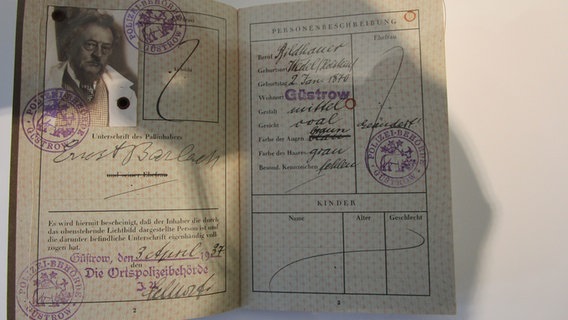 POLIZEI-BEHÖRDE
GÜSTROW
POLIZEI-BEHÖRDE
GÜSTROW
Unterschrift des Paßinhabers
Ernst Barlach
und seiner Ehefrau
Es wird hiermit bescheinigt, daß der Inhaber die durch
das obenstehende Lichtbild dargestellte Person ist und
die darunter befindliche Unterschrift eigenhändig voll-
zogen hat.
Güstrow, den 3. April 1937
den
Die Ortspolizeibehörde
J. V.
POLIZEI-BEHÖRDE
GÜSTROW
2
PERSONENBESCHREIBUNG
Ehefrau
Beruf Bildhauer
Geburtsort Wedel/Holstein
Geburtstag 2 Jan 1870
Wohnort Güstrow
Gestalt mittel
Gesicht oval
Geändert!
braun
Farbe der Augen
Farbe des Haares grau
Besond. Kennzeichen fehlen
POLIZEI-BEHÖRDE
GÜSTROW
KINDER
Name Alter Geschlecht
3